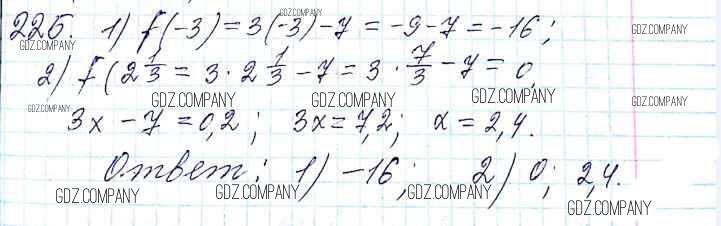 225. 1) f(-3) = 3(-3) - 7 = -9 - 7 = -16;
2) f(2 1/3 = 3 · 2 1/3 - 7 = 3 · 7/3 - 7 = 0,
3x - 7 = 0,2; 3x = 7,2; x = 2,4.
Ответ: 1) -16; 2) 0; 2,4.
GDZ.COMPANY
GDZ.COMPANY
GDZ.COMPANY
GDZ.COMPANY
GDZ.COMPANY
GDZ.COMPANY
GDZ.COMPANY
GDZ.COMPANY
GDZ.COMPANY
GDZ.COMPANY
GDZ.COMPANY
GDZ.COMPANY